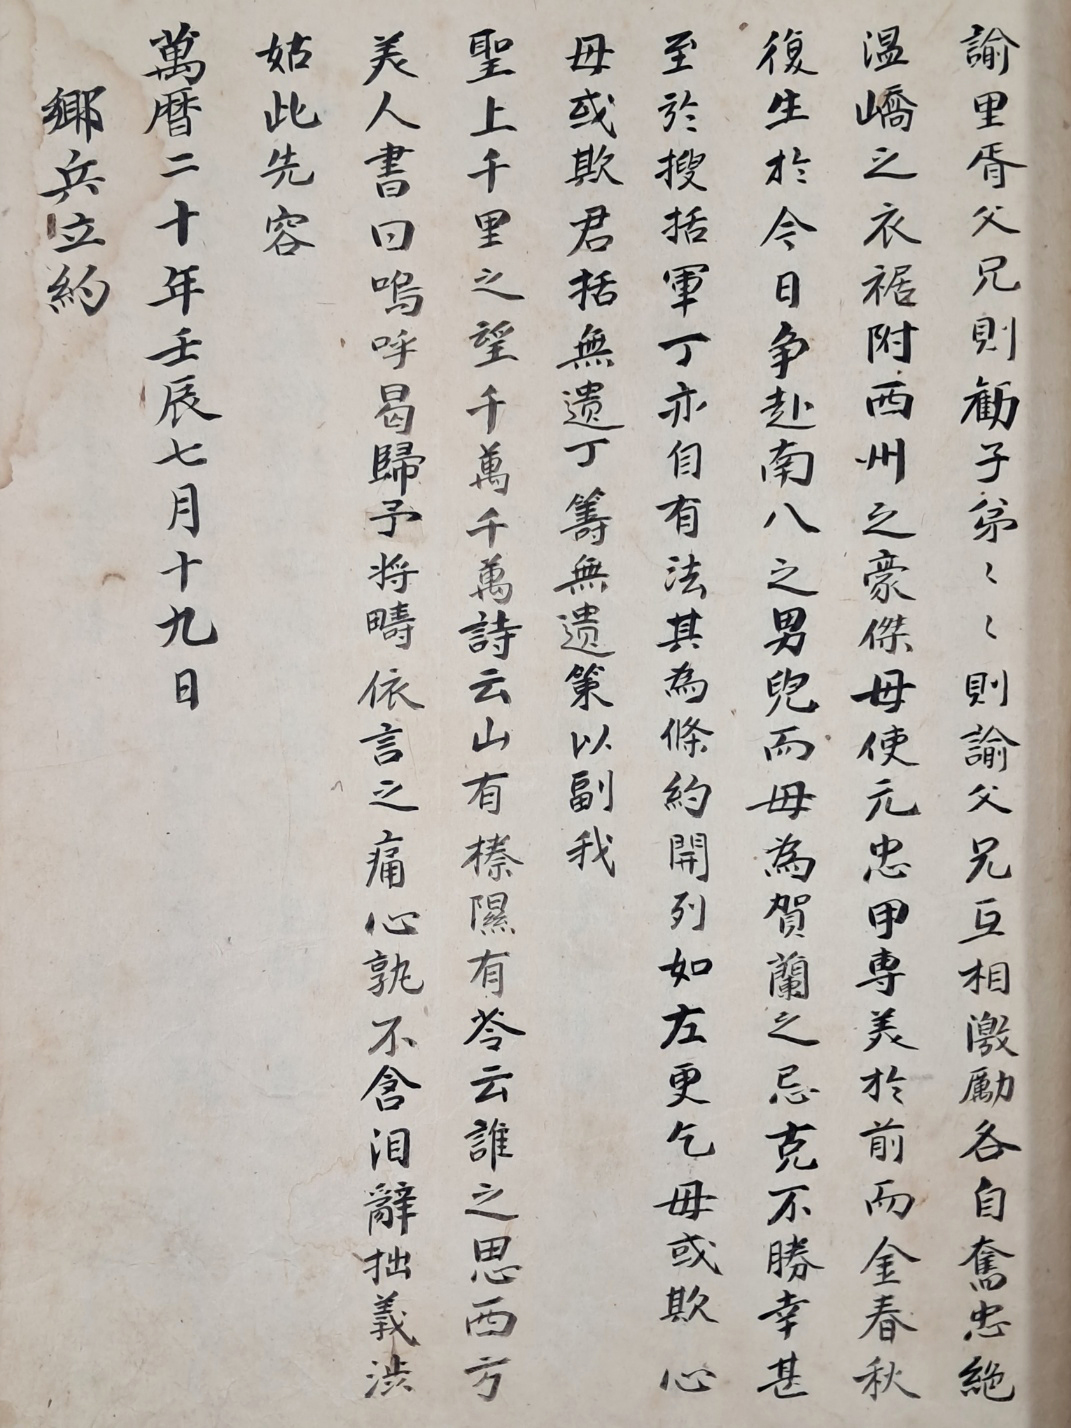 諭里胥父兄則勸子弟〻〻則諭父兄互相激勵各自奮忠絶
温嶠之衣裾附西州之豪傑毋使元忠甲専美於前而金春秋
復生於今日争赴南八之男兒而毋為賀蘭之忌克不勝幸甚
至於搜括軍丁亦自有法其為條約開列如左更乞毋或欺心
毋或欺君括無遺丁籌無遺策以副我
聖上千里之望千萬千萬詩云山有榛隰有苓云誰之思西方
美人書曰嗚呼曷歸予将疇依言之痛心孰不含泪辭拙義澁
姑此先容
萬曆二十年壬辰七月十九日
鄉兵立約